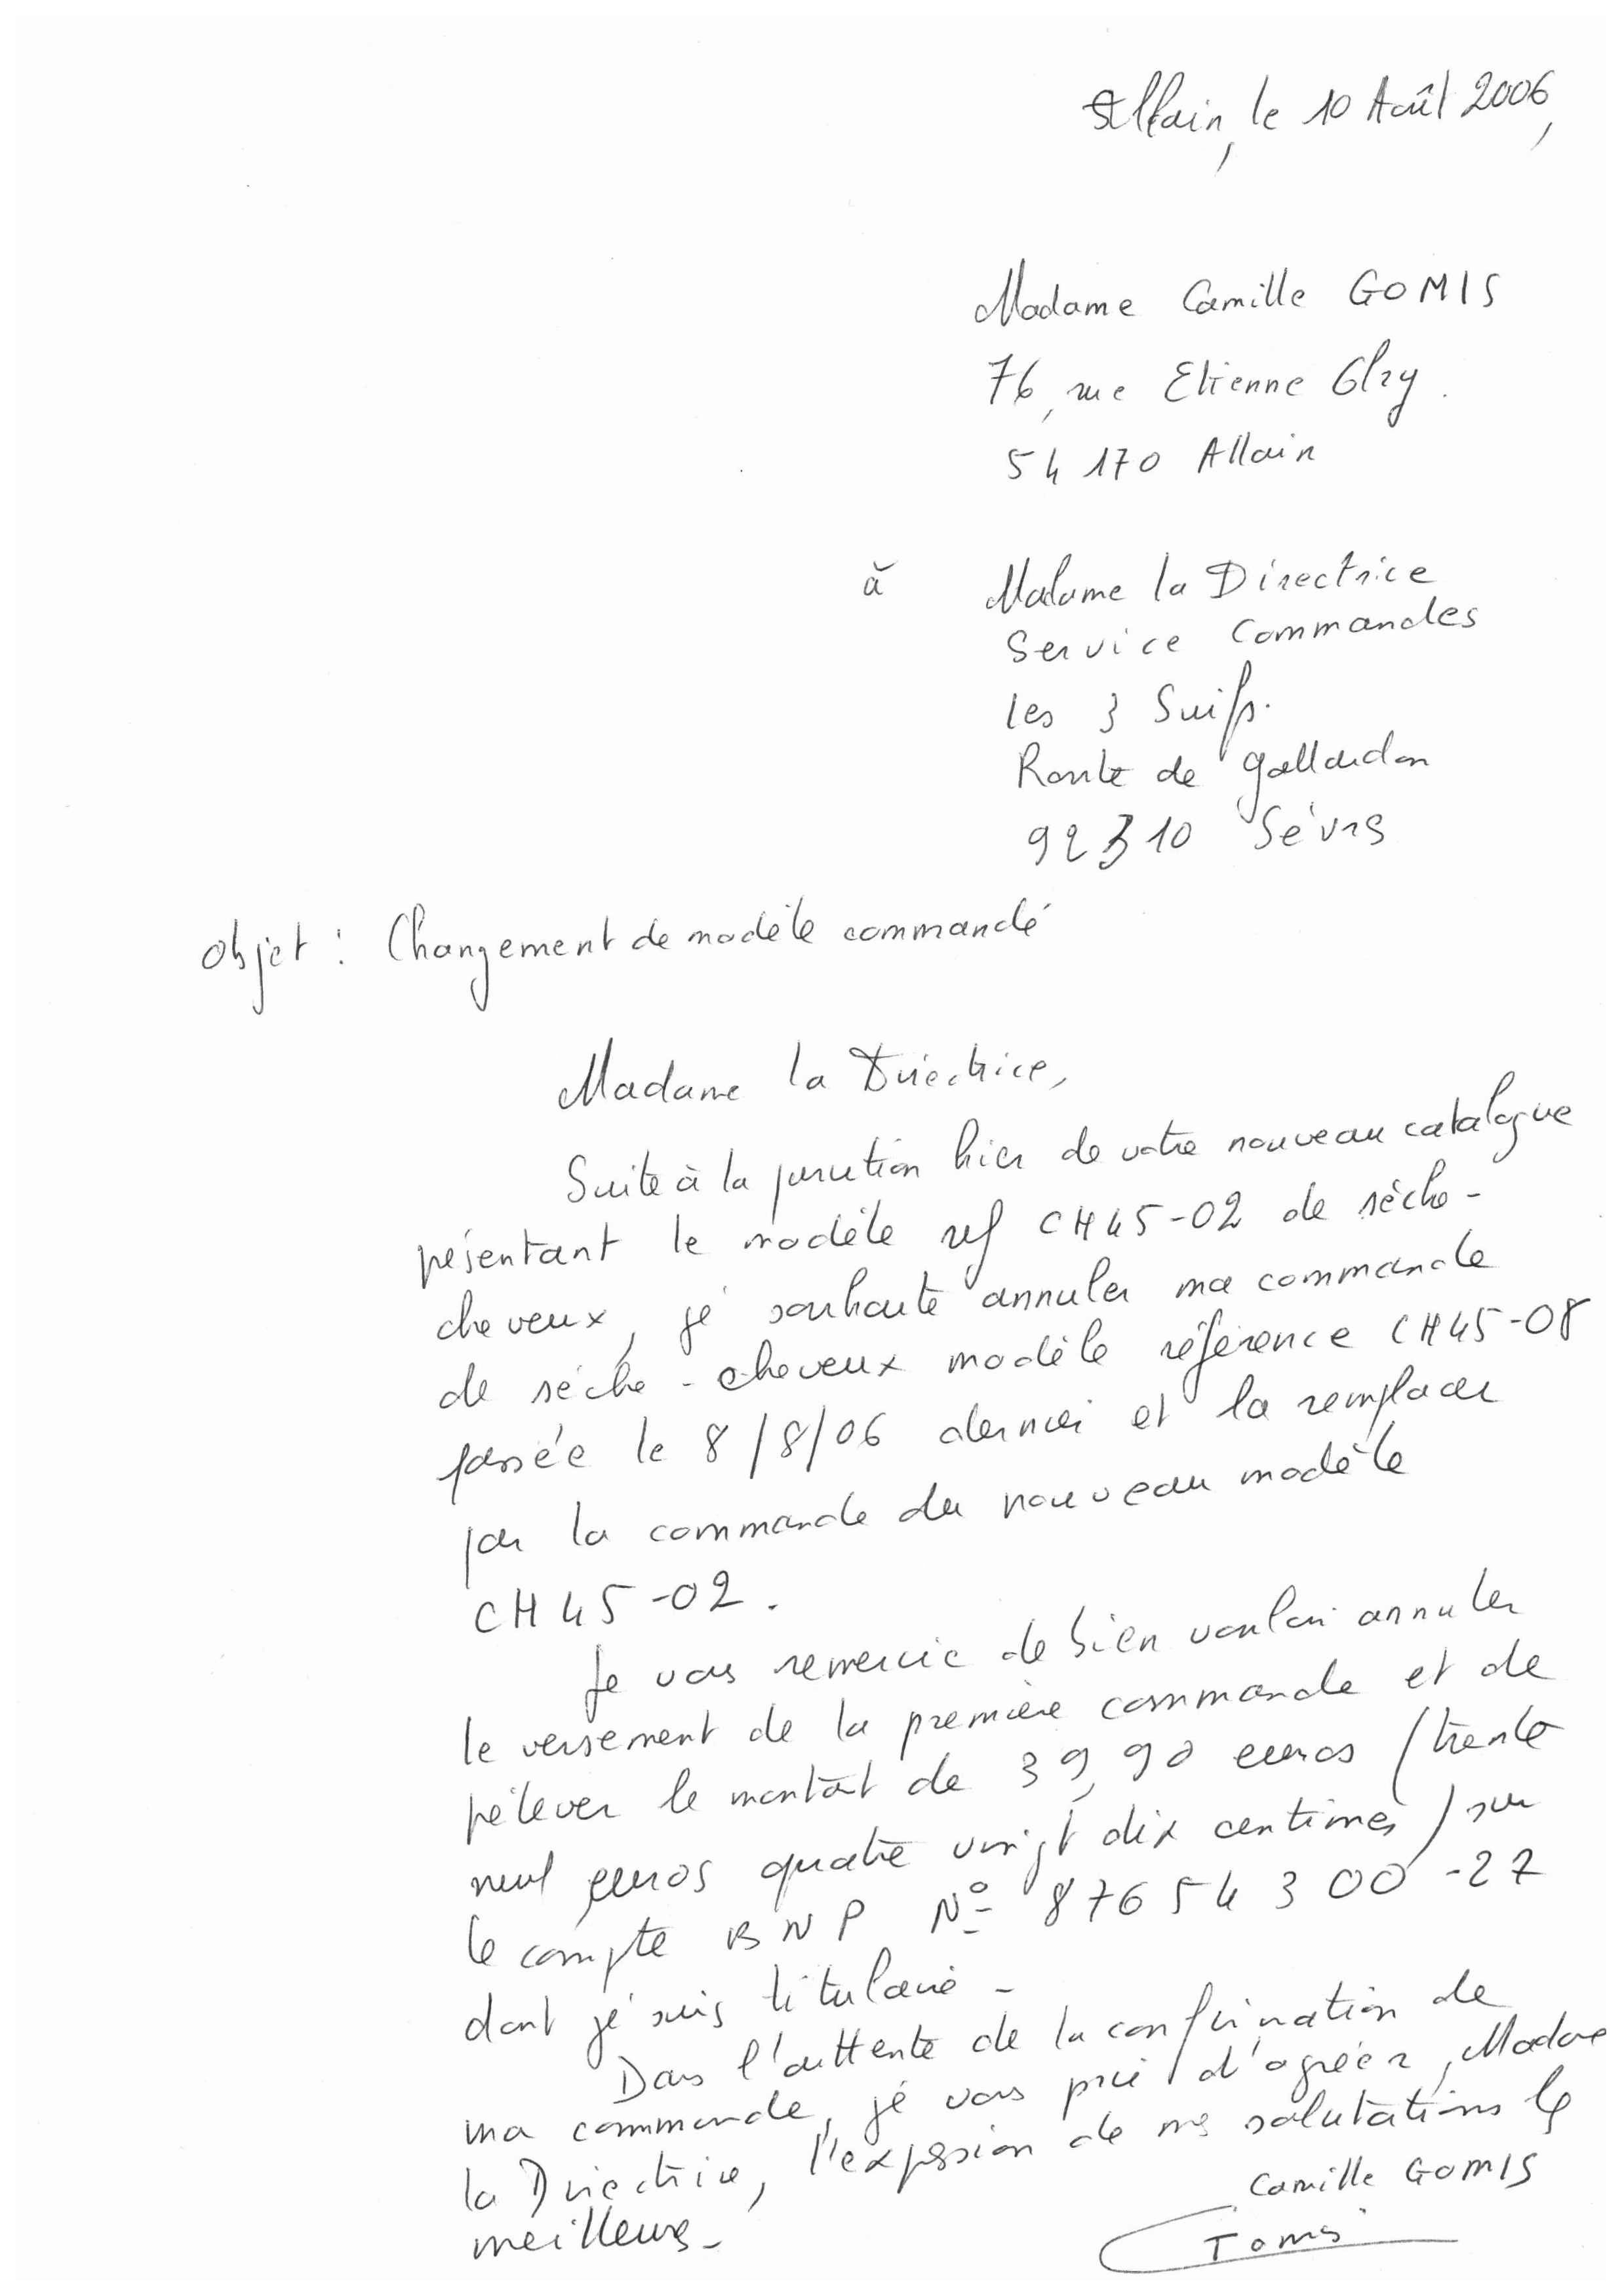 Allain, le 10 Août 2006,
Madame Camille GOMIS
76, rue Etienne Olry.
54170 Allain
à Madame la Directrice
Service Commandes
les 3 Suisses.
Route de gallardon
92310 Sèvres
Objet : Changement de modèle commandé
Madame la Directrice,
Suite à la parution hier de votre nouveau catalogue
présentant le modèle ref CH45-02 de sèche-
cheveux, je souhaite annuler ma commande
de sèche-cheveux modèle référence CH45-08
passée le 8/8/06 dernier et la remplacer
par la commande du nouveau modèle
CH45-02.
Je vous remercie de bien vouloir annuler
le versement de la première commande et de
prélever le montant de 39,90 euros (trente
neuf euros quatre vingt dix centimes) sur
le compte BNP N° 87654300-27
dont je suis titulaire -
Dans l'attente de la confirmation de
ma commande, je vous prie d'agréer, Madame
la Directrice, l'expression de mes salutations les
meilleures -
Camille GOMIS